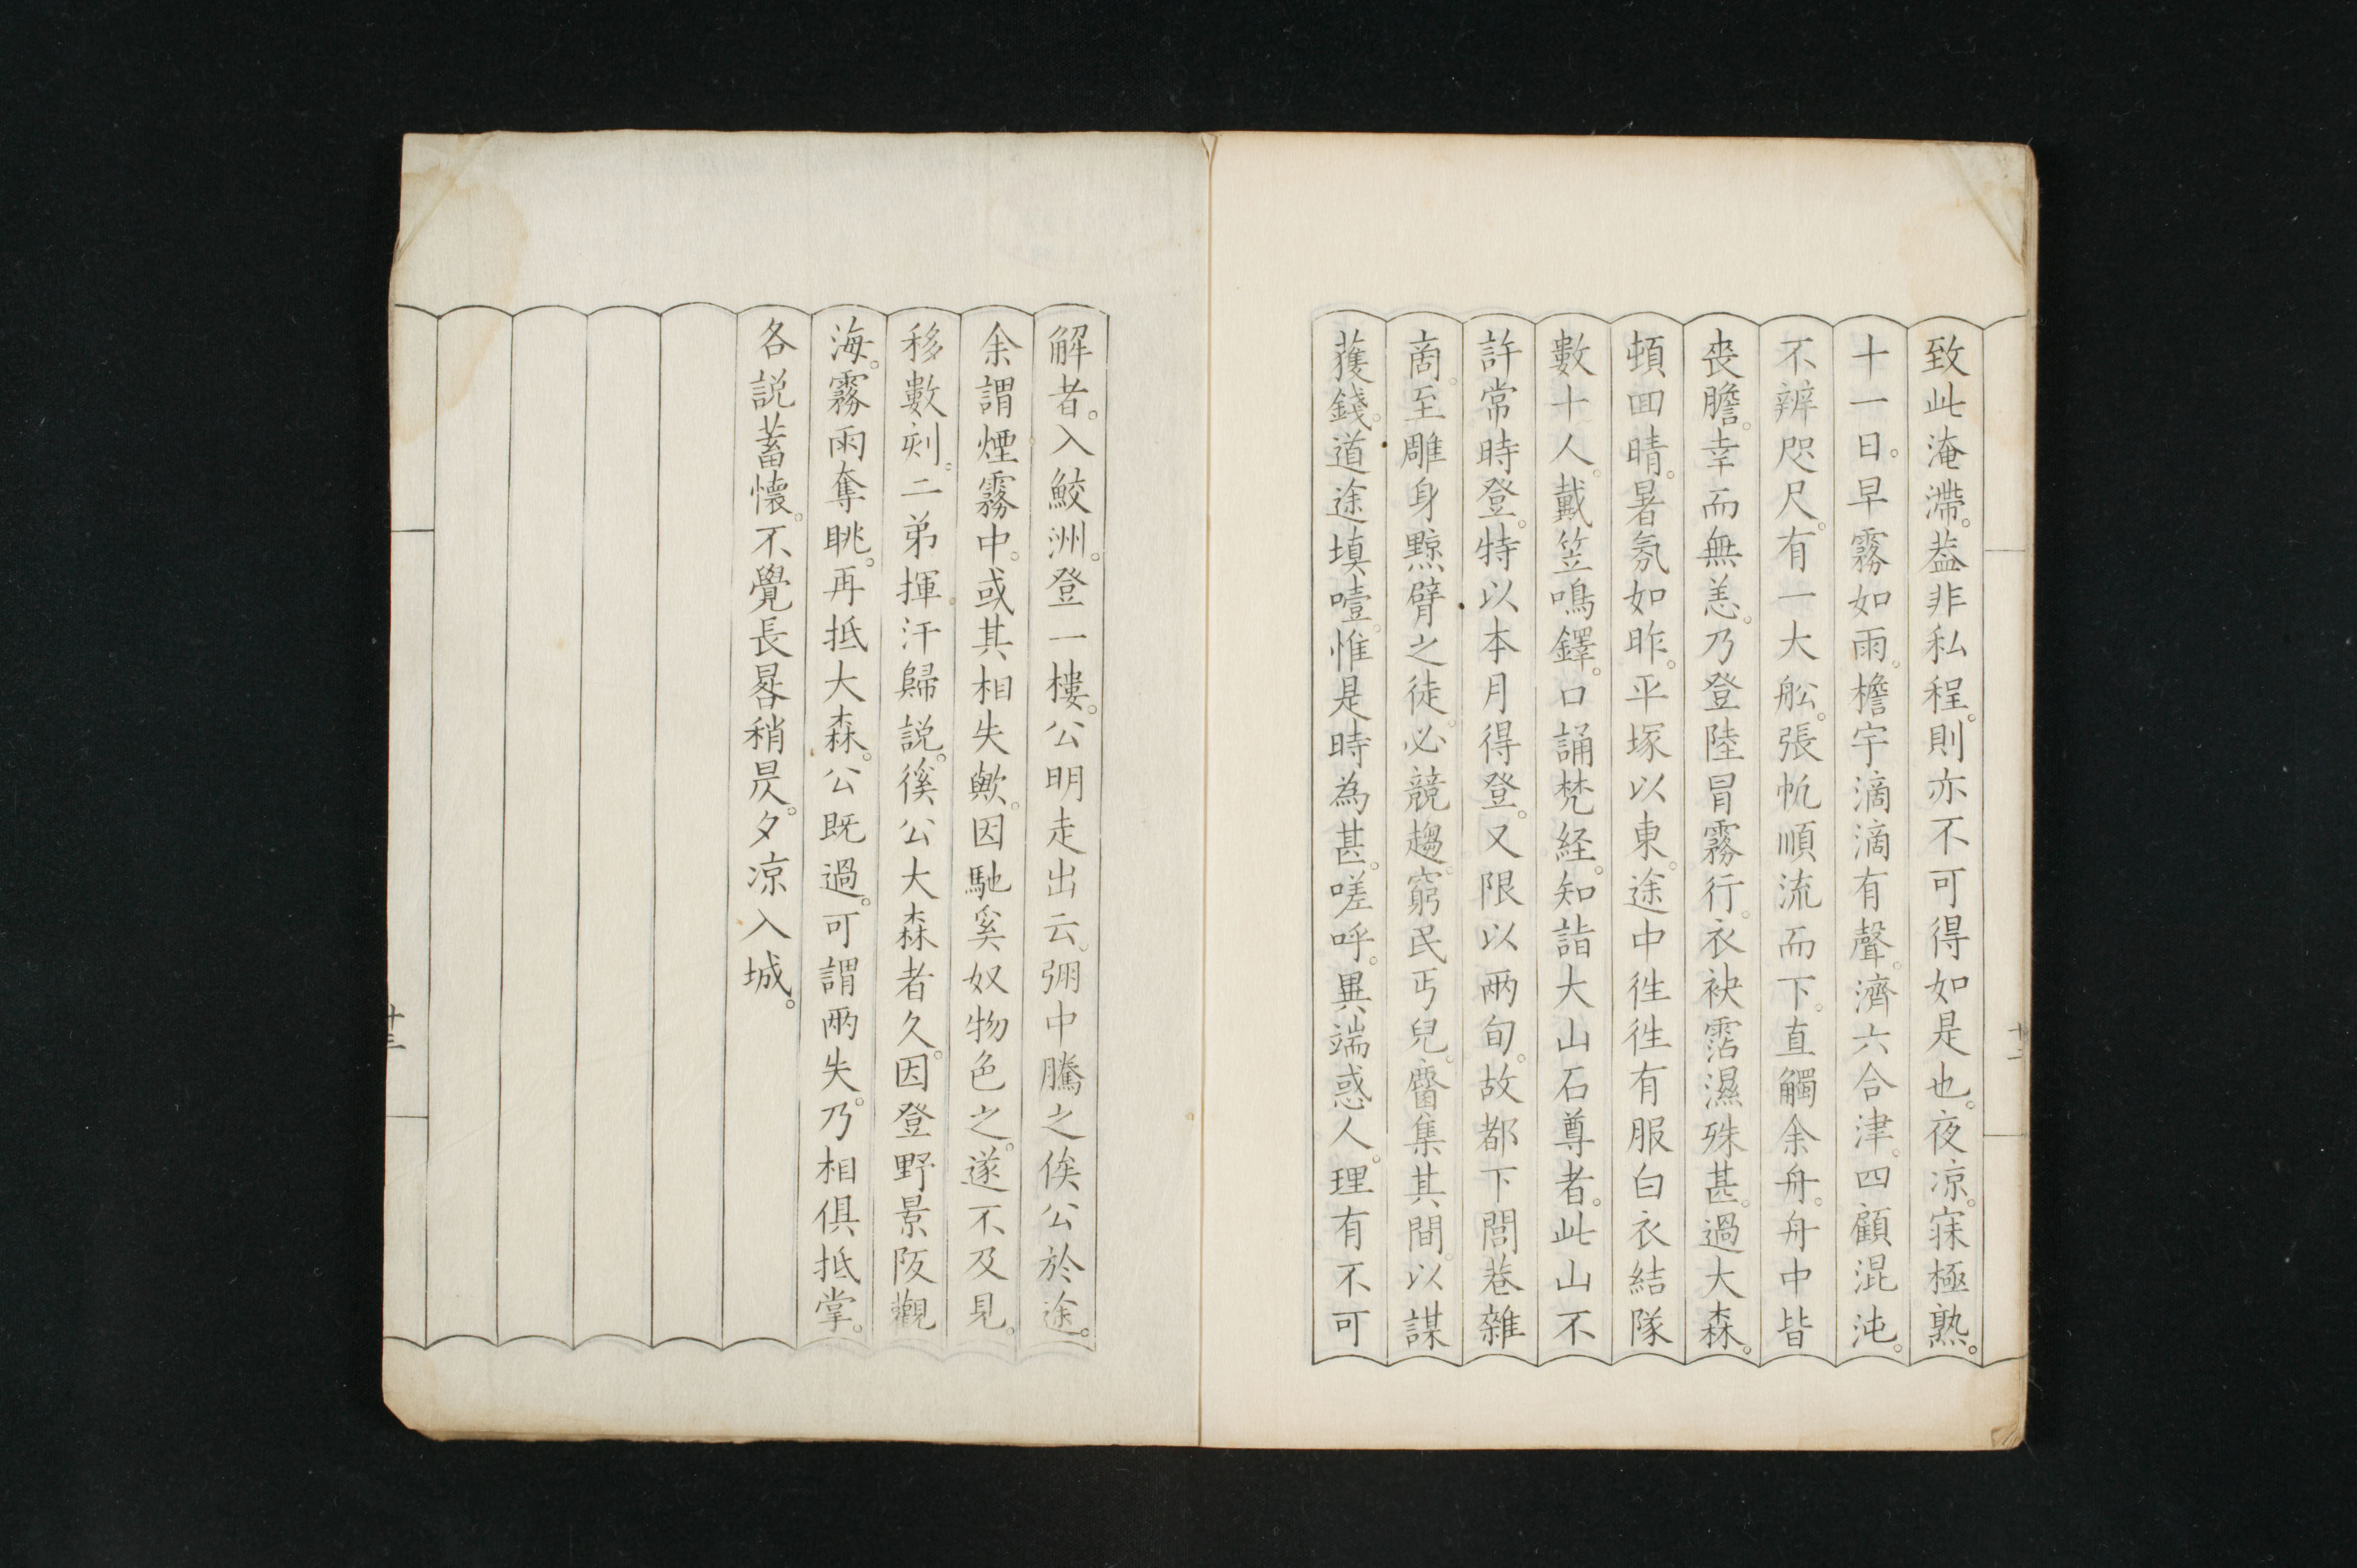 致此淹滯。葢非私程。則亦不可得如是也。夜凉。寐極熟。
十一日。早霧如雨。檐宇滴滴有聲。濟六合津。四顧混沌。
不辨咫尺。有一大舩。張帆順流而下。直觸余舟。舟中皆
喪膽。幸而無恙。乃登陸冒霧行。衣袂霑濕殊甚。過大森。
頓囬晴。暑氛如昨。平塚以東。途中徃徃有服白衣結隊
數十人。戴笠鳴鐸。口誦梵経。知詣大山石尊者。此山不
許常時登。特以本月得登。又限以兩旬。故都下閭巷雜
商。至雕身黥臂之徒。必競趨。窮民丐兒。麕集其間。以謀
獲錢。道途填噎。惟是時為甚。嗟呼。異端惑人。理有不可
十二
解者。入鮫洲。登一樓。公明走出云。弸中騰之俟公於途。
余謂煙霧中。或其相失歟。因馳奚奴物色之。遂不及見。
移數刻。二弟揮汗歸說。徯公大森者久。因登野景阪觀
海。霧雨奪眺。再抵大森。公既過。可謂兩失。乃相俱抵掌。
各説蓄懷。不覺長晷稍昃。夕凉入城。
十三